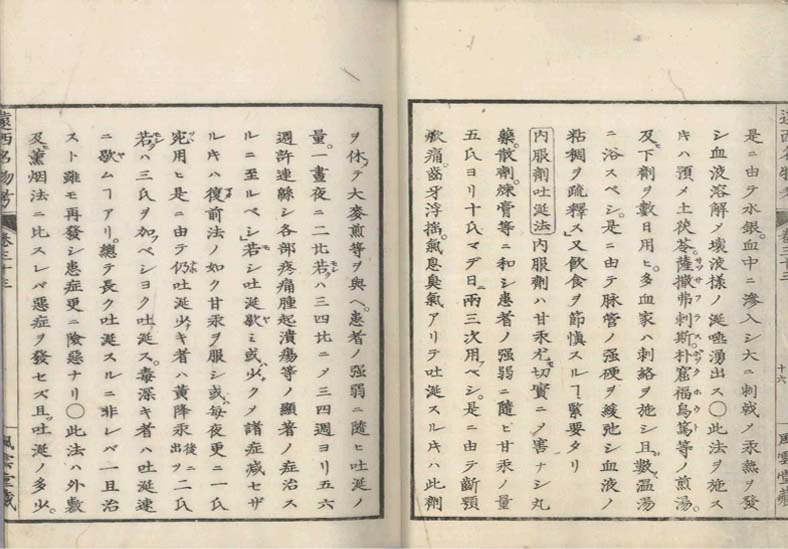 遠西名物考
卷三十三
十六
風雲堂藏
是ニ由テ水銀。血中ニ滲入シ大ニ刺戟ノ汞熱ヲ發
シ血液溶解ノ壞液樣ノ涎唾湧出ス〇此法ヲ施ス
キハ預メ土茯苓。薩撒弗剌斯。朴窟福烏篤等ノ煎湯。
及下劑ヲ數日用ヒ。多血家ハ刺絡ヲ施シ且數溫湯
ニ浴スベシ。是ニ由テ脉管ノ强硬ヲ緩弛シ血液ノ
粘稠ヲ疏釋ス」又飲食ヲ節愼スルヿ緊要タリ
內服劑吐涎法 內服劑ハ甘汞尤切實ニノ害ナシ丸
藥。散劑。煉膏等ニ和シ患者ノ强弱ニ隨ヒ甘汞ノ量
五氏ヨリ十氏マデ日ニ兩三次用ベシ。是ニ由テ齗顎
焮痛。齒牙浮搖。氣息臭氣アリテ吐涎スルキハ此劑
ヲ休テ大麥煎等ヲ與ヘ。患者ノ强弱ニ隨ヒ吐涎ノ
量。一晝夜ニ二比若ハ三四比ニノ三四週ヨリ五六
週許連緜シ各部疼痛腫起潰瘍等ノ顯著ノ症治ス
ルニ至ルベシ」若シ吐涎歇ミ或少クメ諸症减セザ
ルキハ復前法ノ如ク甘汞ヲ服シ或每夜更ニ一氏
宛用ヒ是ニ由テ仍吐涎少キ者ハ黃降汞後ニ出ニ二氏
若ハ三氏ヲ加ベシヨク吐涎ス。毒深キ者ハ吐涎速
ニ歇ムヿアリ。總テ長ク吐涎スルニ非レバ一旦治
スト雖モ再發シ患症更ニ險惡ナリ〇此法ハ外敷
及薰烟法ニ比スレバ惡症ヲ發セズ且吐涎ノ多少。
遠西名物考
卷三十三
風雲堂藏